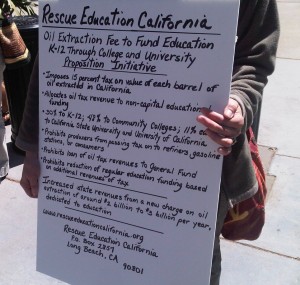 Rescue Education California
Oil Extraction Fee to Fund Education
K-12 Through College and University
Proposition Initiative
• Imposes 15 percent tax on value of each barrel of
oil extracted in California
• Allocates oil tax revenue to non-capital educational
funding
• 30% to K-12; 48% to Community Colleges; 11% each
to California State University and University of California
• Prohibits producers from passing tax on to refiners, gasoline
stations, or consumers
• Prohibits loan of oil tax revenues to General Fund
• Prohibits reduction of regular education funding based
on additional revenues of tax
Increased state revenues from a new charge on oil
extraction of around $2 billion to $3 billion per year,
dedicated to education
www.rescueeducationcalifornia.org
Rescue Education California
P.O. Box 2857
Long Beach, CA
90801